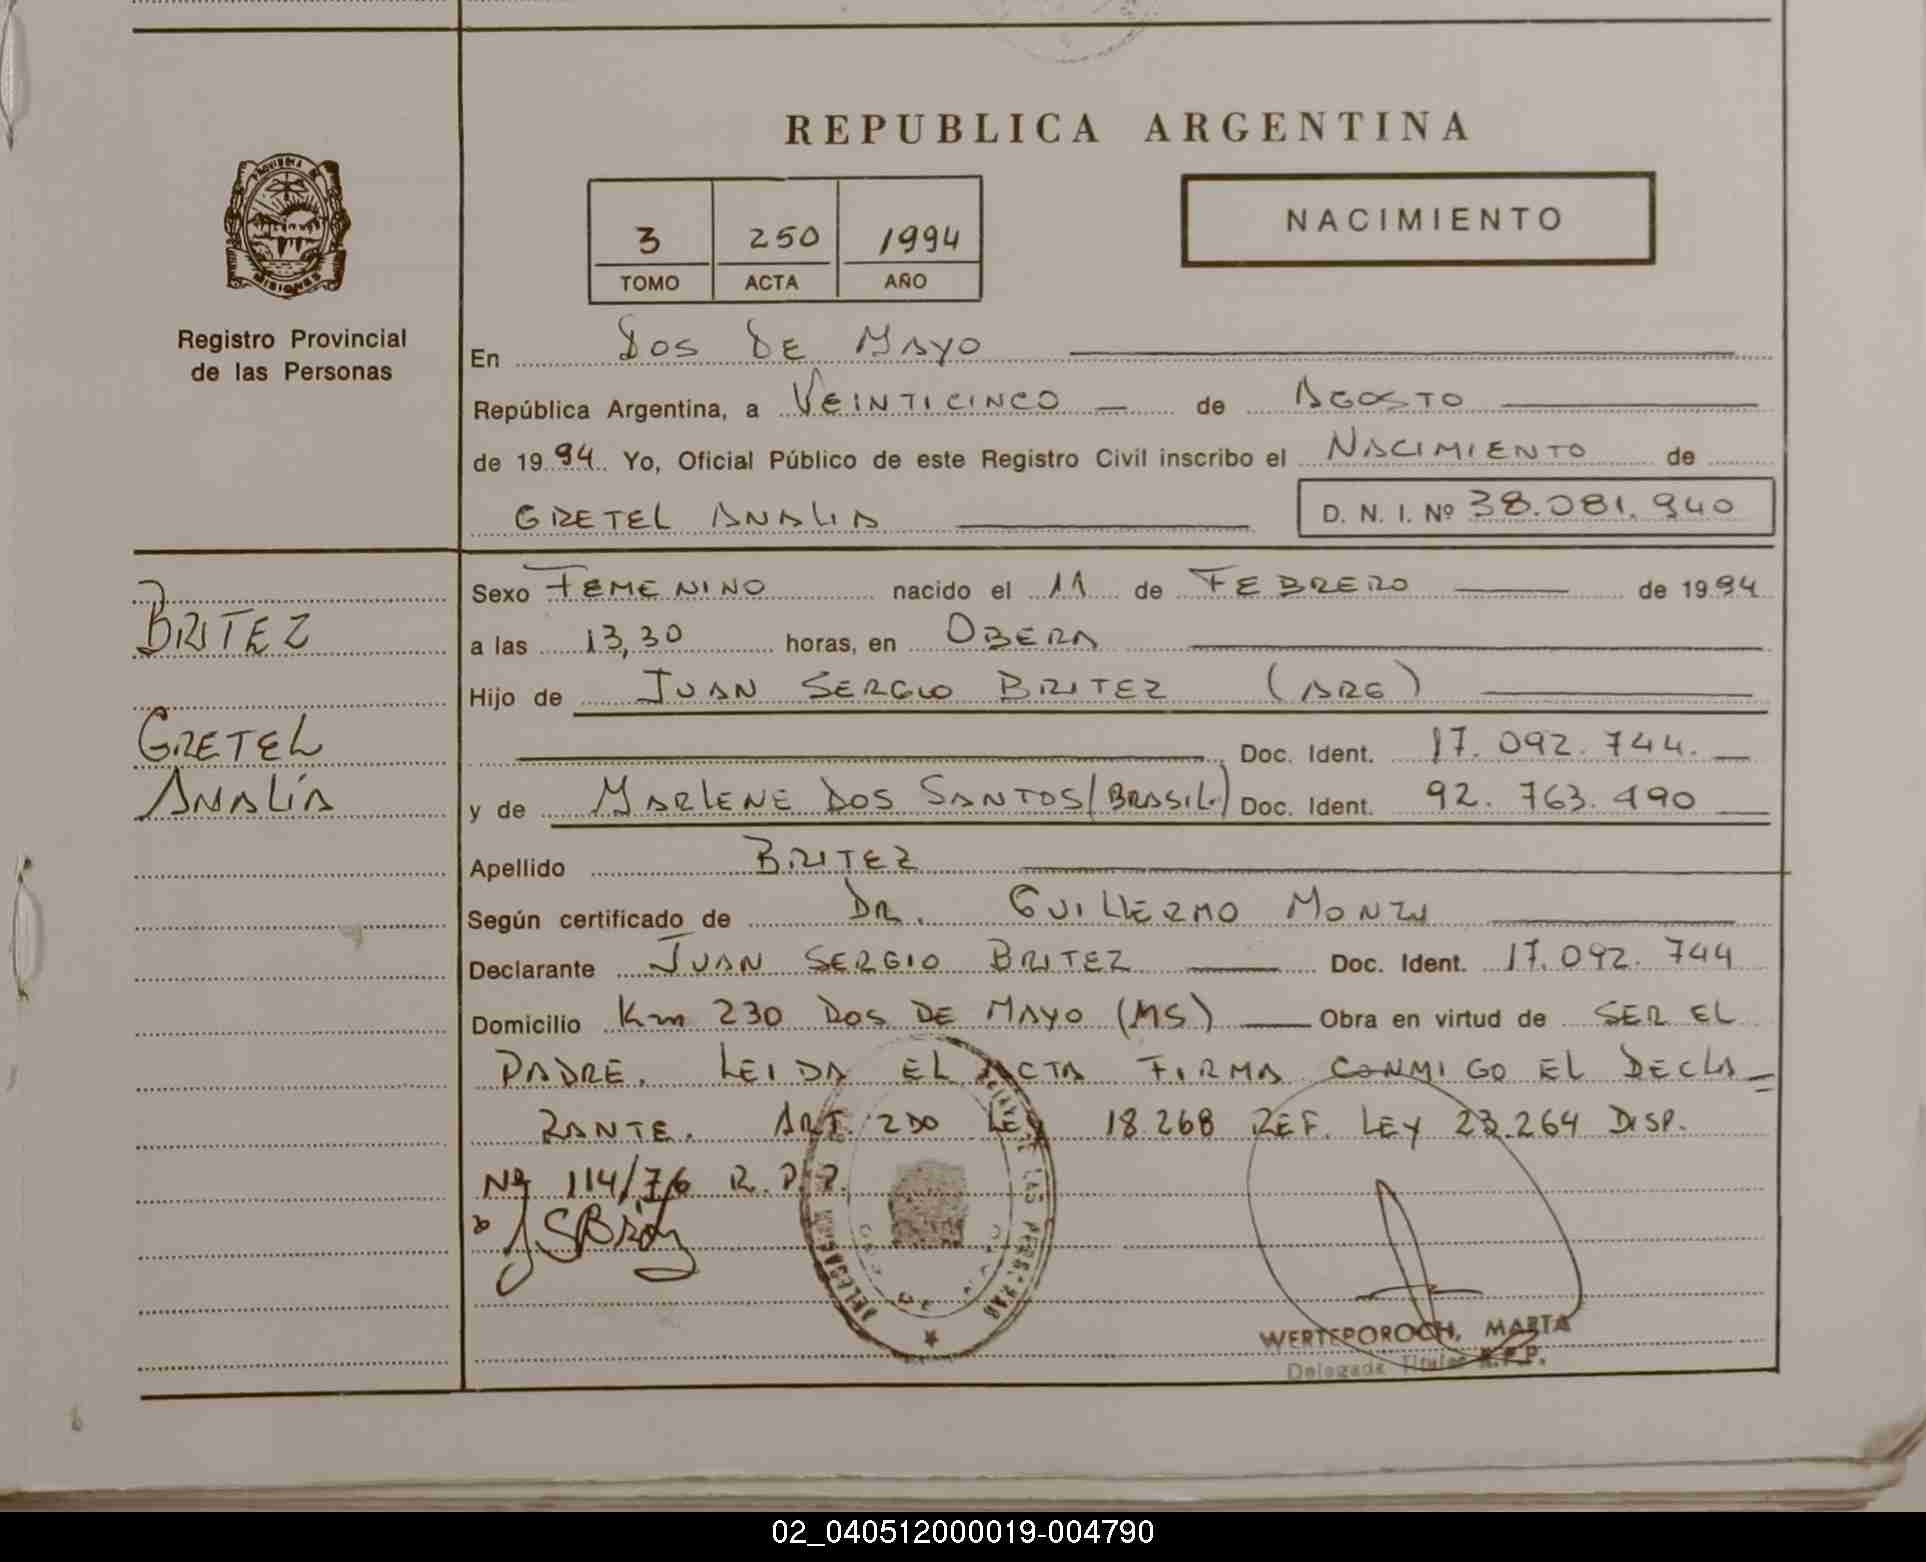 REPUBLICA ARGENTINA
PROVINCIA DE
MISIONES
Registro Provincial
de las Personas
3 250 1994
TOMO ACTA AÑO
NACIMIENTO
En Dos De Mayo
República Argentina, a Veinticinco de Agosto
de 1994 Yo, Oficial Público de este Registro Civil inscribo el Nacimiento de
GRETEL ANALIA D. N. I. Nº 38.081.940
BRITEZ
GRETEL
ANALÍA
Sexo FEMENINO nacido el 11 de FEBRERO de 1994
a las 13,30 horas, en OBERA
Hijo de JUAN SERGIO BRITEZ (ARG)
Doc. Ident. 17.092.744.
y de MARLENE DOS SANTOS (BRASIL.) Doc. Ident. 92.763.490
Apellido BRITEZ
Según certificado de DR. GUILLERMO MONZU
Declarante JUAN SERGIO BRITEZ Doc. Ident. 17.092.744
Domicilio Km 230 DOS DE MAYO (MS) Obra en virtud de SER EL
PADRE. LEIDA EL ACTA FIRMA CONMIGO EL DECLA=
RANTE. ART. 2DO LEY 18.268 REF. LEY 23.264 DISP.
Nº 114/76 R.P.P.
WERTEPOROCH, MARTA
Delegada Titular R.P.P.
02_040512000019-004790